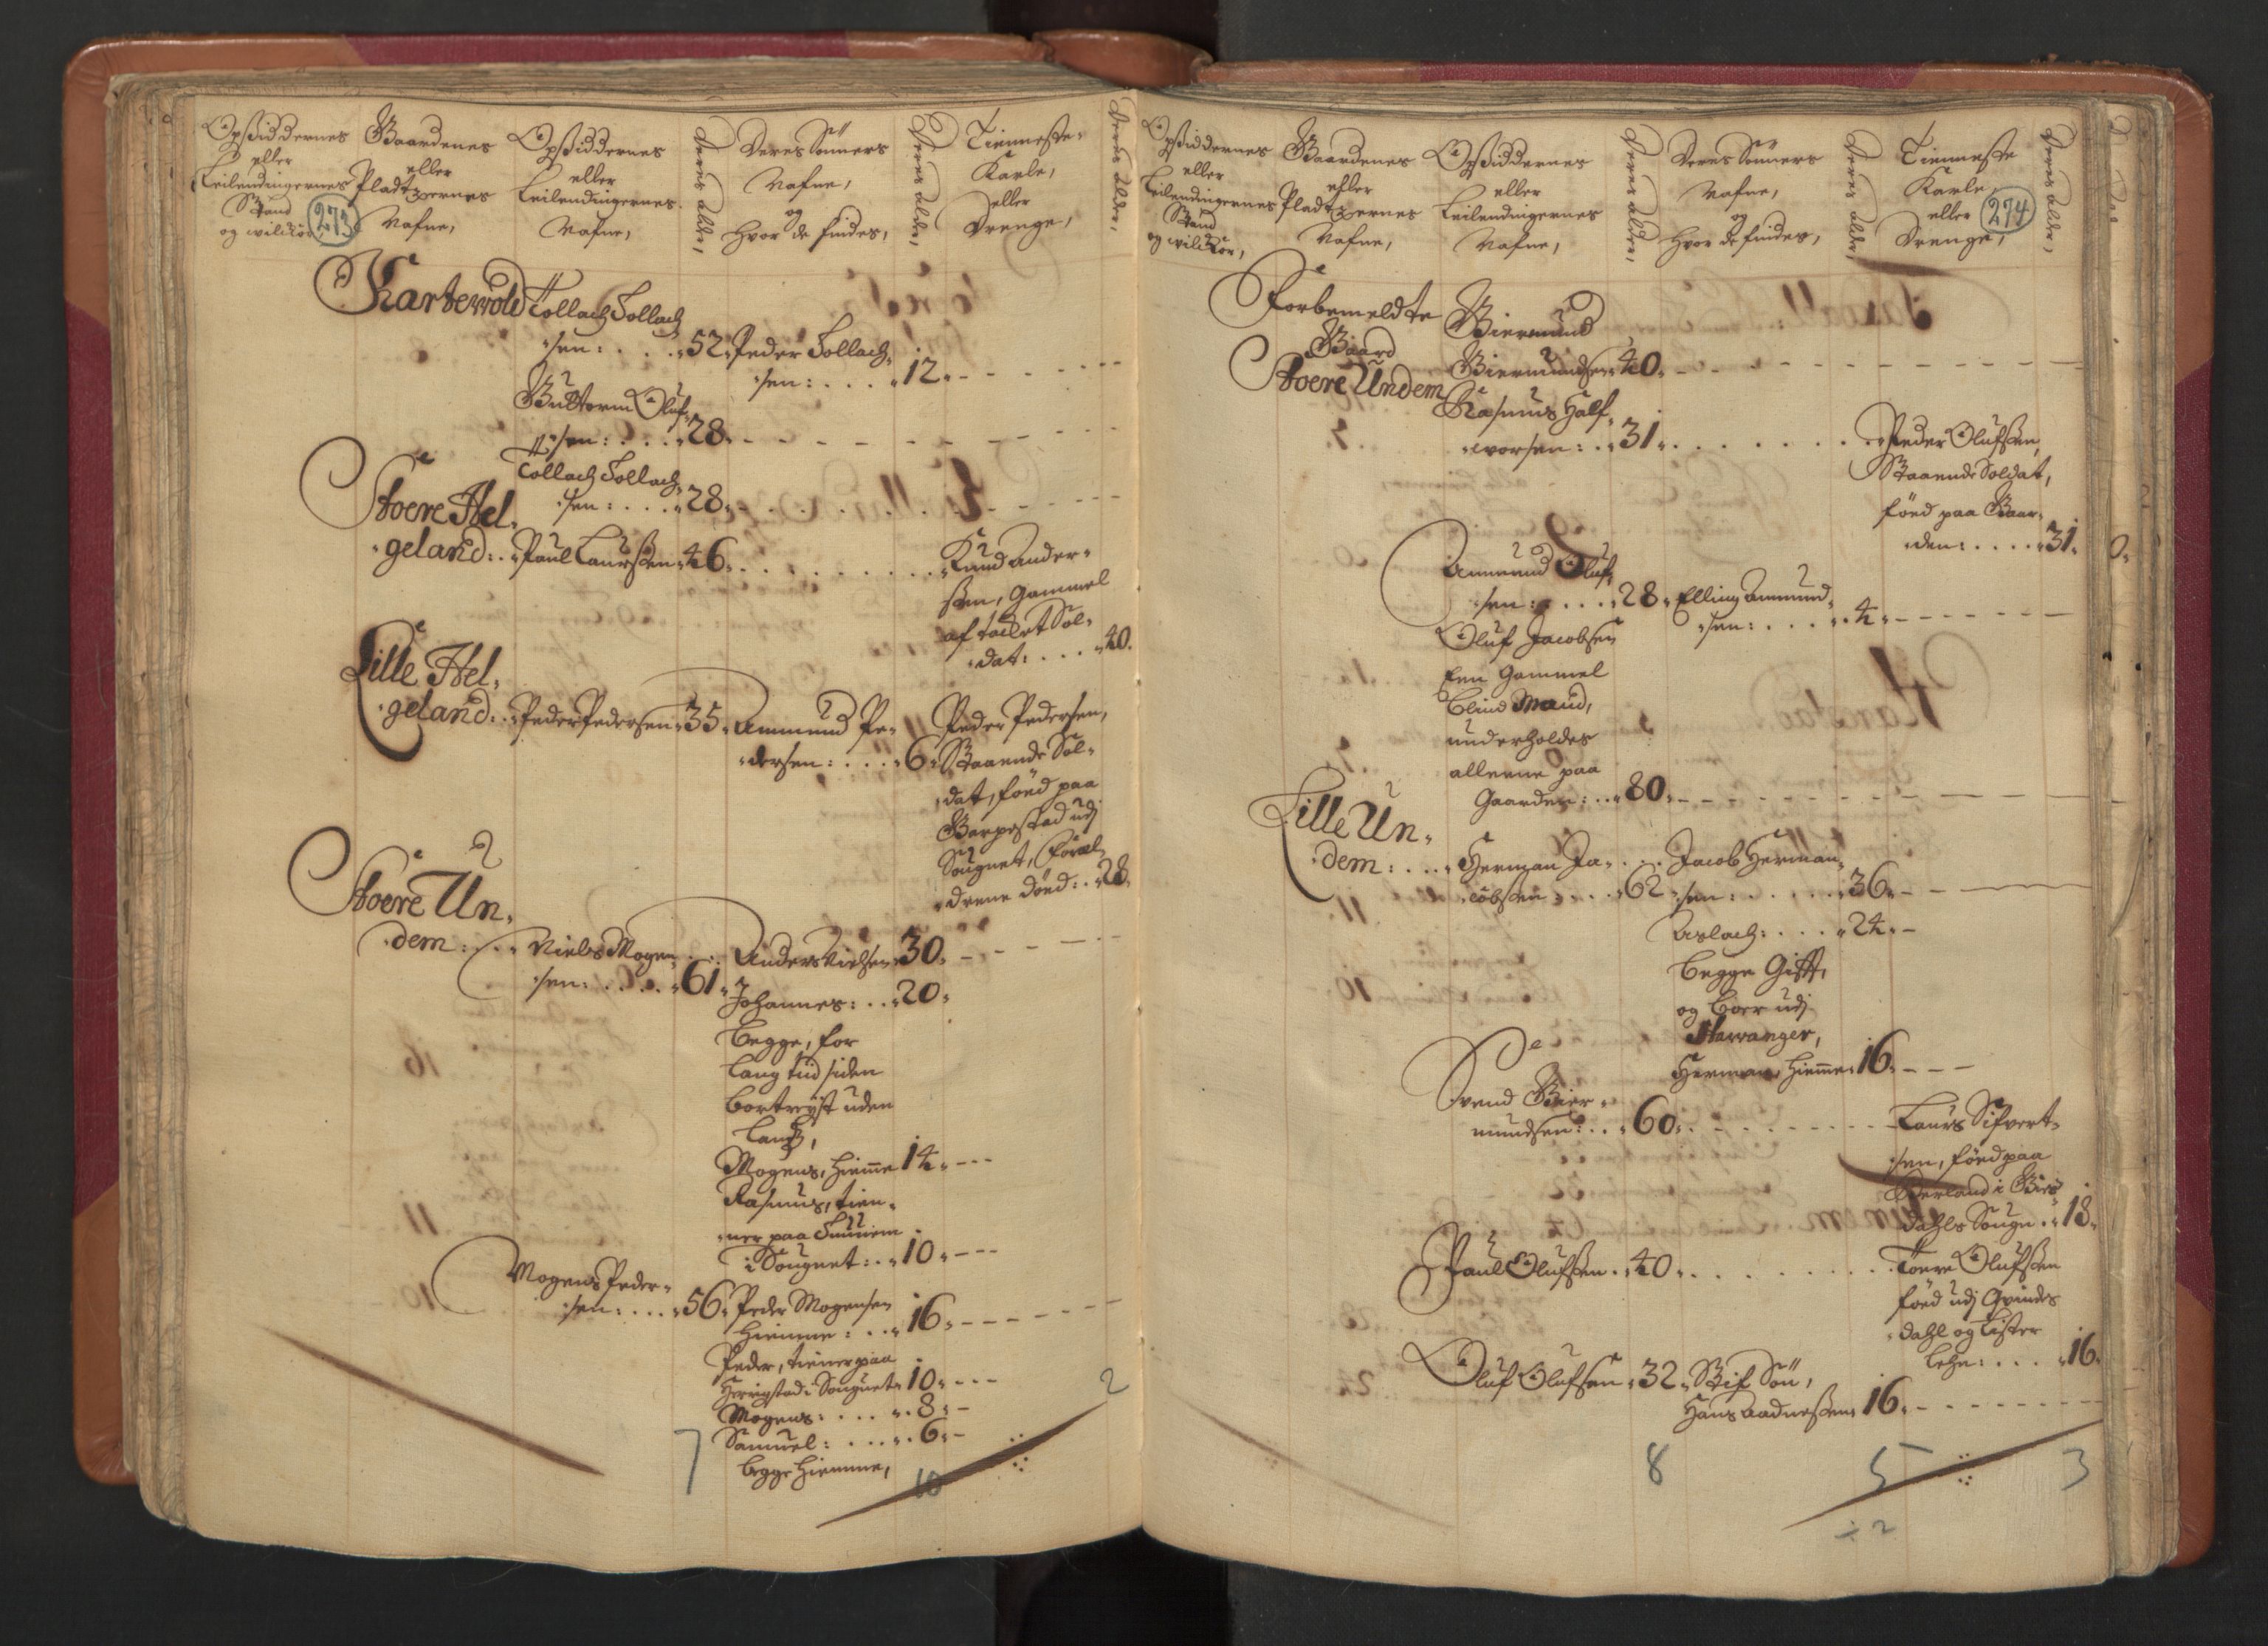 Opsiddernes
eller
Leilendingernes
Stand
og wilckor,
273
Gaardenes
eller
Pladtzernes
Nafne,
Opsiddernes
eller
Leilendingernes
Nafne,
Deres alder,
Deres Sönners
Nafne,
og
hvor de findes,
Deres alder,
Tienneste
Karle,
eller
Drenge,
Deres alder,
Kartewold Tollach Tollach
sen: . . . 52. Peder Tollach
sen: . . . 12.
Guttorm Oluf
sen: . . . 28.
Tollach Tollach
sen: . . . 28.
Stoere Hel
geland: . Paul Laurssen 46. Knud Ander
ssen, Gammel
af tacket Sol
dat: . . . 40.
Lille Hel
geland: . Peder Pedersen 35. Ammund Pe
dersen: . . . 6.
Peder Pedersen,
Staaende Sol
dat, föed paa
udj
Sougnet, foræl
drene döed: . 28.
Stoere Un
dem: . . . Niels Mogen
sen: . . . 61.
Anders Nielsen 30.
Johannes: . . 20.
begge, for
lang tiid siden
bortreÿst uden
landz,
Mogens, hiemme 14.
Rasmus, tien
ner paa
i Sougnet: . 10.
Mogens Peder
sen: . . . 56. Peder Mogensen
hiemme: . . 16.
Peder, tiener paa
i Sougnet 10.
Mogens: . . . 8.
Samuel: . . . 6.
begge hiemme,
7
10
2
Opsiddernes
eller
Leilendingernes
Stand
og wilckor,
Gaardenes
eller
Pladtzernes
Nafne,
Opsiddernes
eller
Leilendingernes
Nafne,
Deres alder,
Deres Sönners
Nafne,
og
hvor de findes,
Deres alder,
Tienneste
Karle,
eller
Drenge,
274
Deres alder,
Forbemeldte
Gaard
Stoere Undem
Giermund
Giermundsen 40.
Rasmus Half
worsen: . . 31.
Peder Olufsen,
Staaende Soldat,
föed paa Gaar
den: . . . . 31.
Ammund Oluf
sen: . . . 28. Elling Ammund
sen: . . . 4.
Oluf Jacobsen
Een Gammel
blind Mand,
underholdes
alleene paa
Gaarden: . . 80.
Lille Un
dem: . . . Herman Ja
cobsen . . . 62.
Jacob Herman
sen: . . . . 36.
Aslach: . . . 24.
begge Gift,
og boer udj
Stavanger,
Herman, hiemme 16.
Svend Gier
mundsen: . . 60.
Laurs Sifvert
sen, föed paa
i Gies
dahls Sougn . 18.
Paul Olufssen . 40.
Toere Olufssen
föed udj Qvindes
dahl og Lister
Lehn: . . . 16.
Oluf Olufsen 32. Stif Sön,
Hans Aadnessen 16.
8
5
3
÷ 2